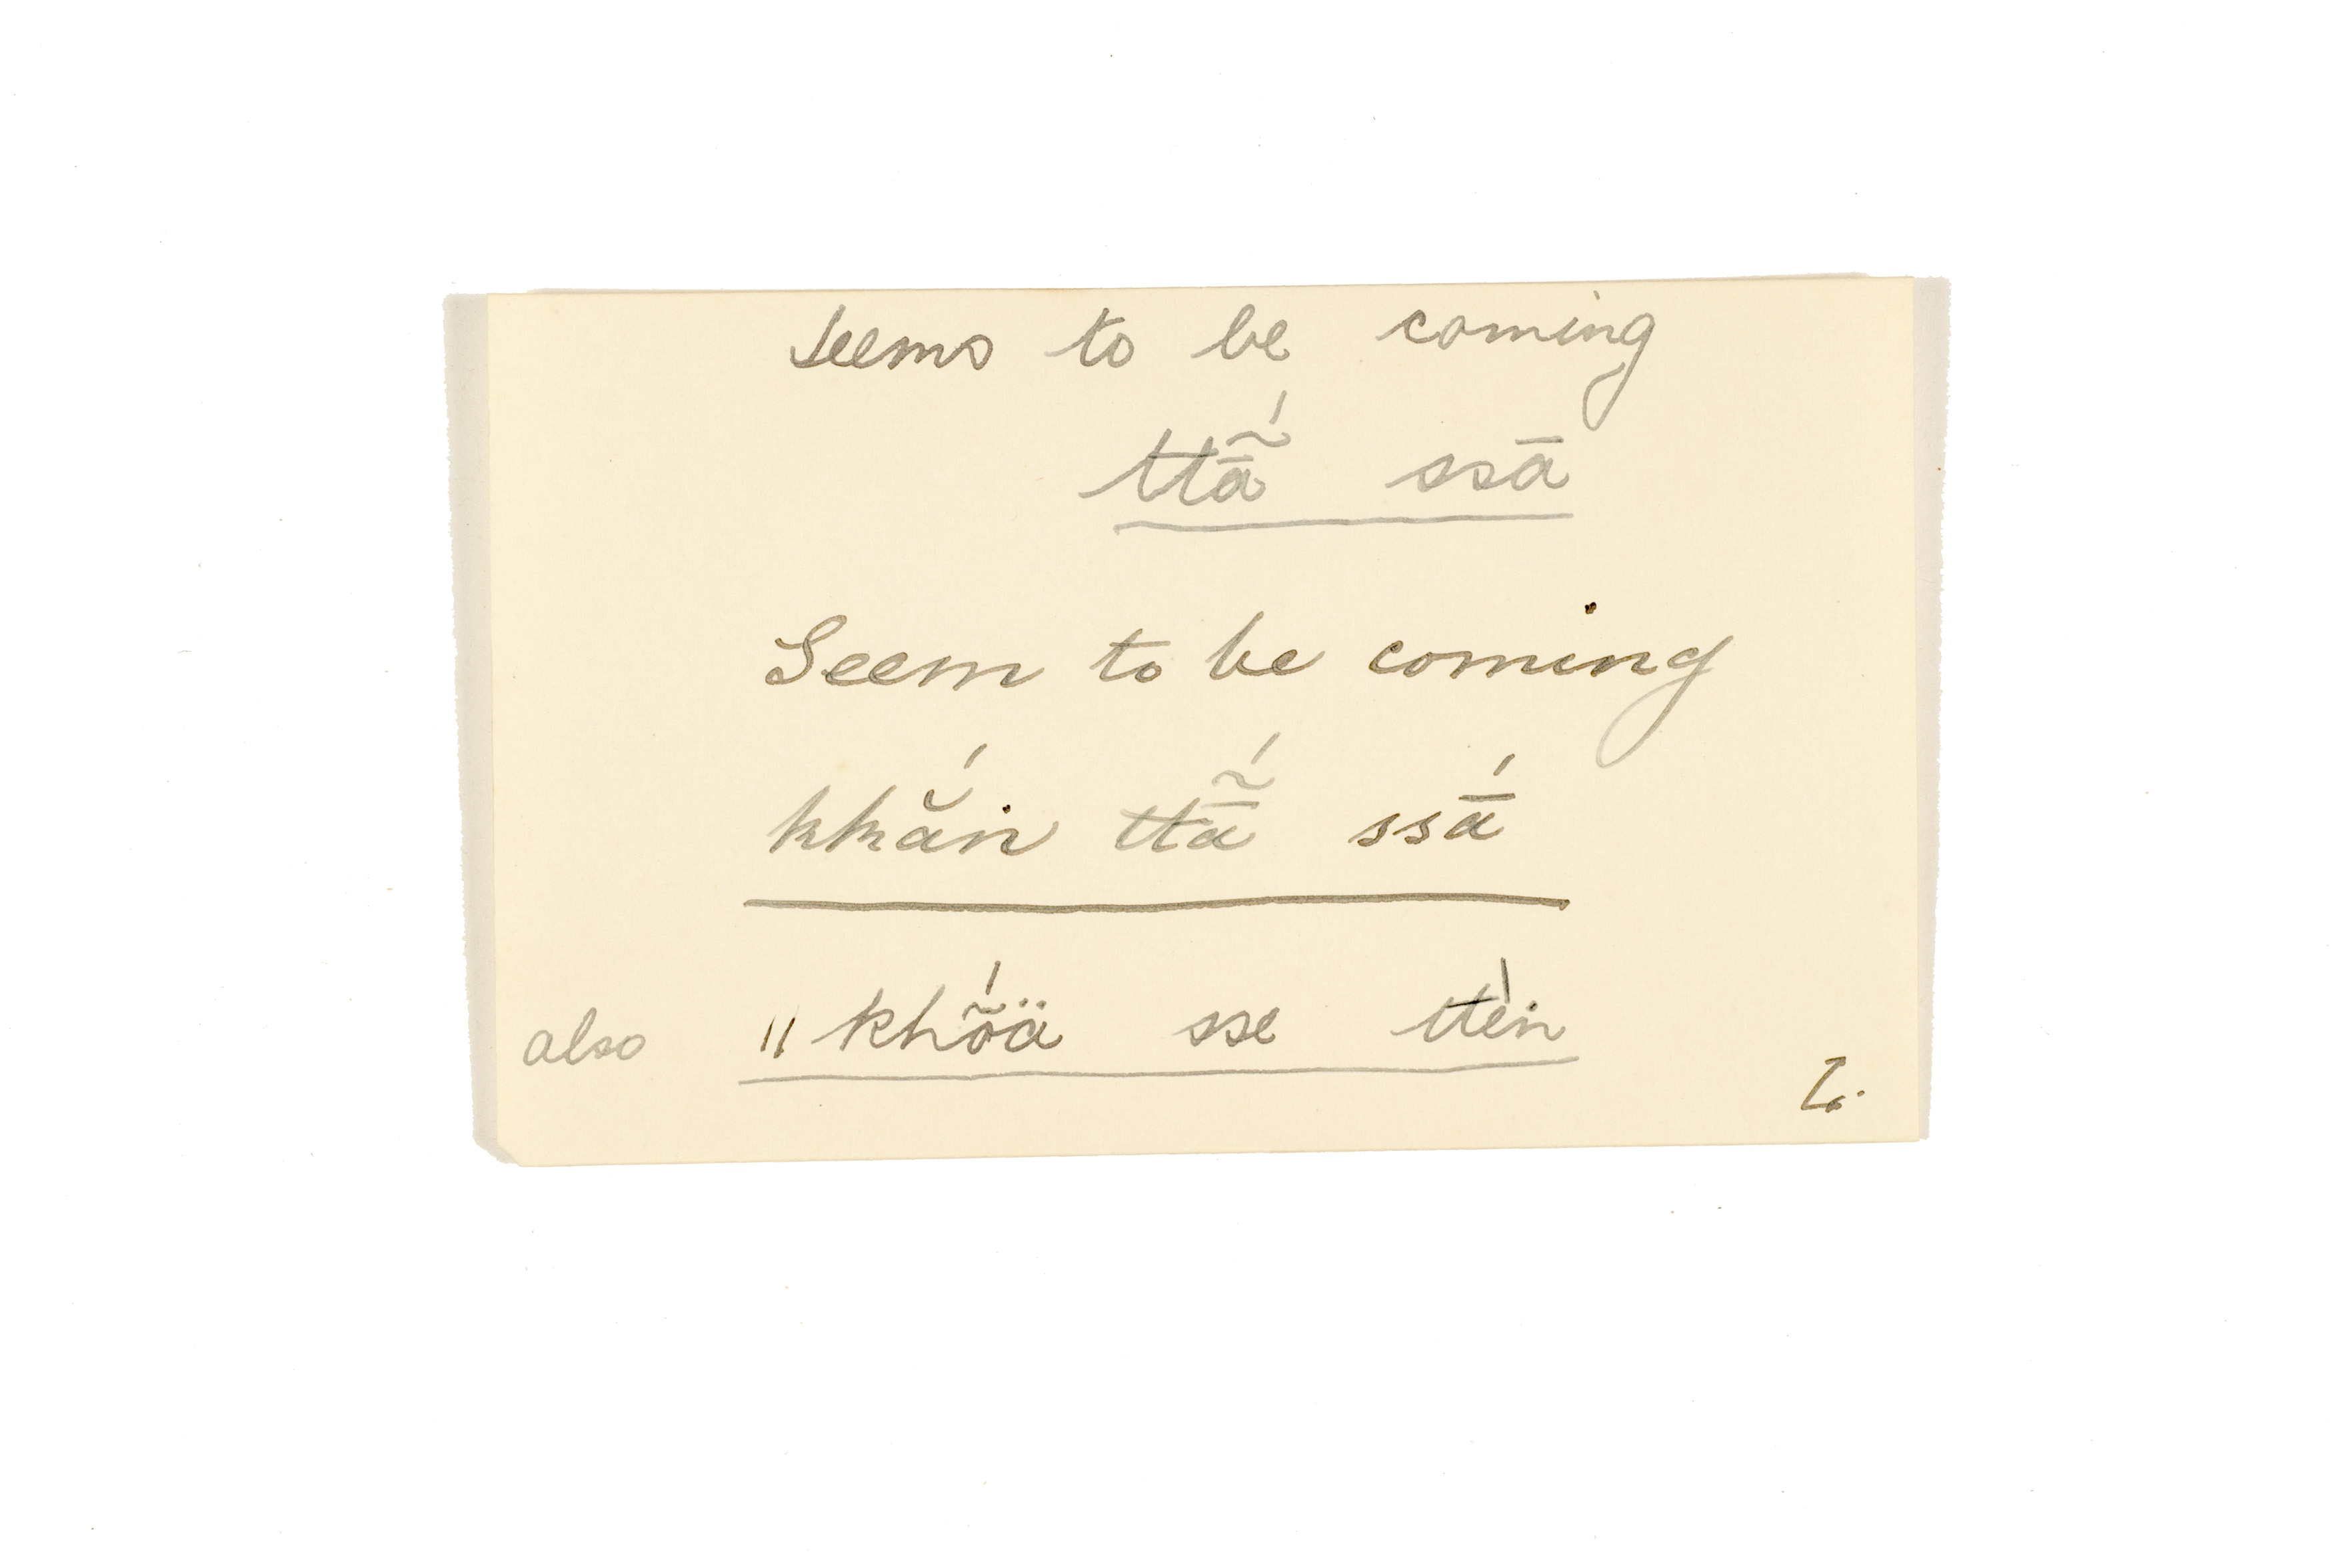 seems to be coming
ttā̃́ ssā
Seem to be coming
khắṅ ttā̃́ ssā́
also " khṍä sse ttėń